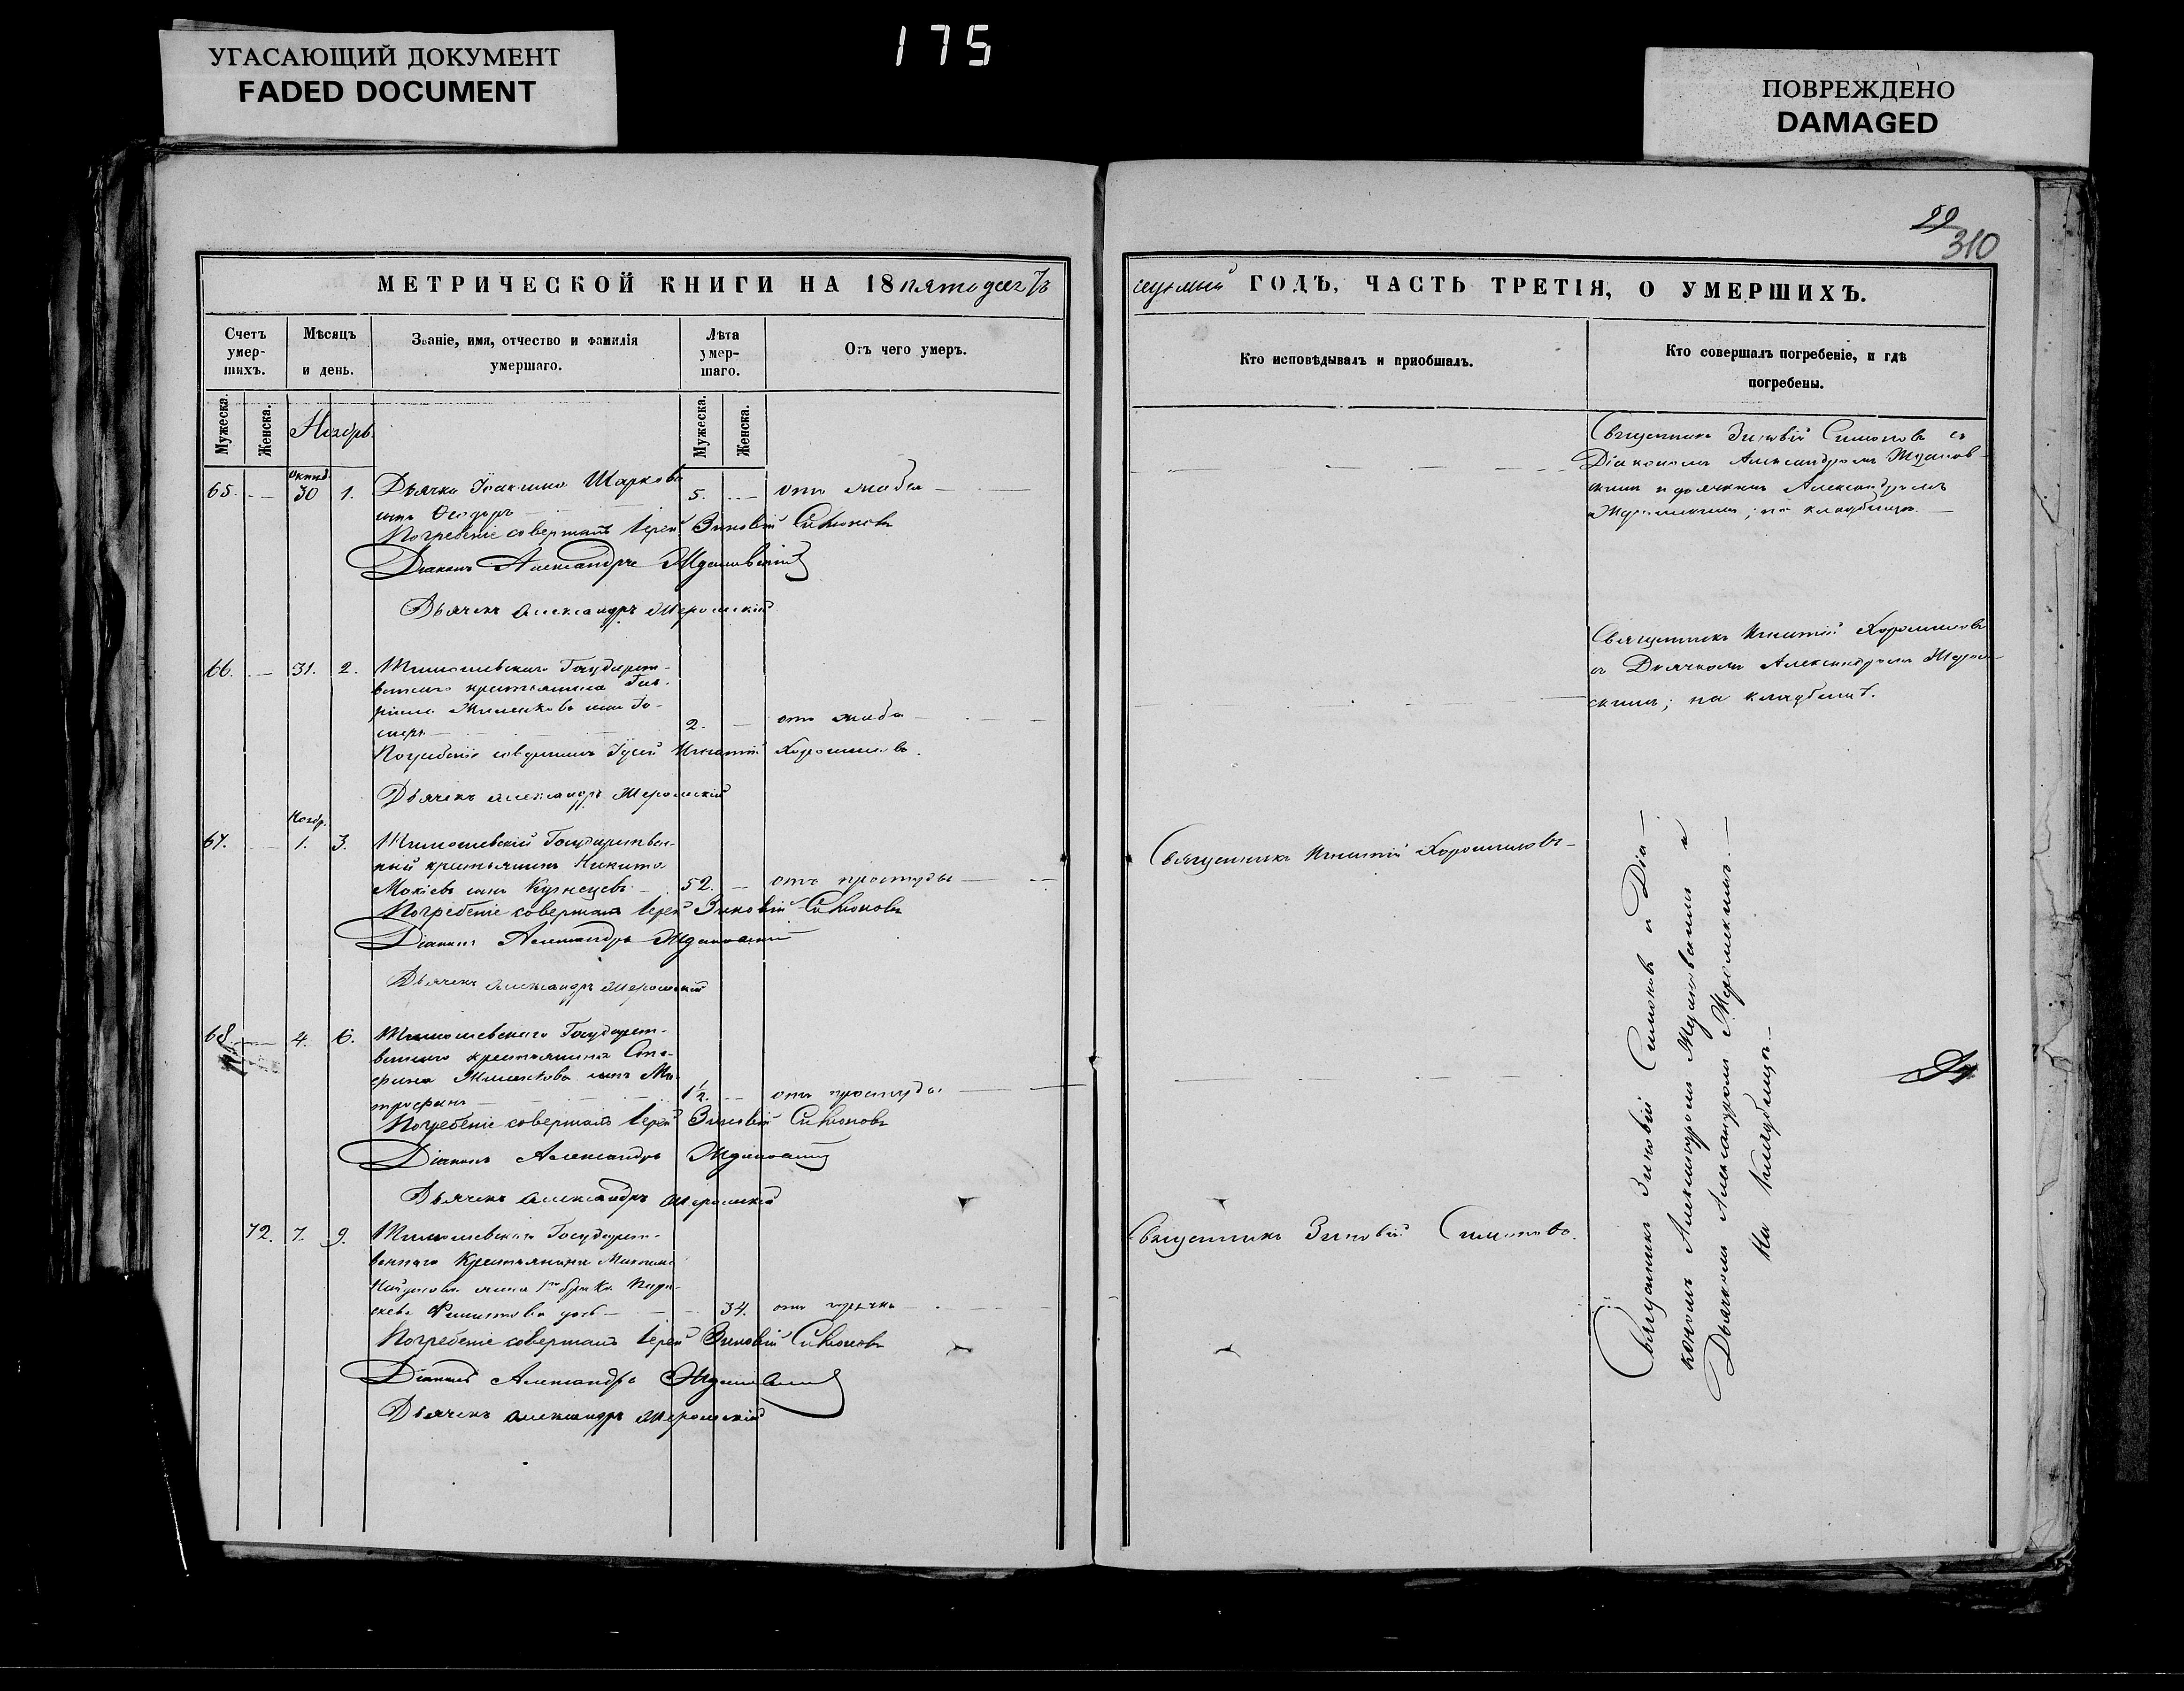 УГАСАЮЩИЙ ДОКУМЕНТ
FADED DOCUMENT
175
ПОВРЕЖДЕНО
DAMAGED
22
310
МЕТРИЧЕСКОЙ КНИГИ НА 18 пятьдесятъ
седьмый ГОДЪ, ЧАСТЬ ТРЕТІЯ, О УМЕРШИХЪ.
Счетъ умер-шихъ.
Мѣсяцъ и день.
Званіе, имя, отчество и фамилія умершаго.
Лѣта умер-шаго.
Отъ чего умеръ.
Кто исповѣдывалъ и пріобщалъ.
Кто совершалъ погребеніе, и гдѣ погребены.
Мужеска.
Женска.
Ноябрь.
Мужеска.
Женска.
Октяб.
65. 30 1. Дьячка Іоакима Шаркова 5. отъ жабы
сынъ Ѳеодоръ
Погребеніе совершалъ Іерей Зиновій Симоновъ
Діаконъ Александръ Ждановскій
Дьячекъ Александръ Жеромскій
Священникъ Зиновій Симоновъ съ
Діакономъ Александромъ Жданов-
скимъ и дьячкомъ Александромъ
Жеромскимъ; на кладбищѣ.
66. 31. 2. Государст-
веннаго крестьянина
сынъ
2. отъ жабы
Погребеніе совершалъ Іерей Игнатій Хорошиловъ.
Дьячекъ Александръ Жеромскій
Священникъ Игнатій Хорошиловъ
съ Дьячкомъ Александромъ Жером-
скимъ; на кладбищѣ.
Нояб.
67. 1. 3. Государствен-
ный крестьянинъ Никита
Мокіевъ сынъ Кузнецовъ 52. отъ простуды
Погребеніе совершалъ Іерей Зиновій Симоновъ
Діаконъ Александръ Ждановскій
Дьячекъ Александръ Жеромскій
Священникъ Игнатій Хорошиловъ
68. 4. 6. Государст-
веннаго крестьянина
сынъ Ми-
трофанъ 1½. отъ простуды
Погребеніе совершалъ Іерей Зиновій Симоновъ
Діаконъ Александръ Ждановскій
Дьячекъ Александръ Жеромскій
72. 7. 9. Государст-
веннаго Крестьянина
жена 1го брака
дочь 34. отъ горячки
Погребеніе совершалъ Іерей Зиновій Симоновъ
Діаконъ Александръ Ждановскій
Дьячекъ Александръ Жеромскій
Священникъ Зиновій Симоновъ.
Священникъ Зиновій Симоновъ и Діа-
кономъ Александромъ Ждановскимъ и
Дьячкомъ Александромъ Жеромскимъ.
На кладбищѣ.